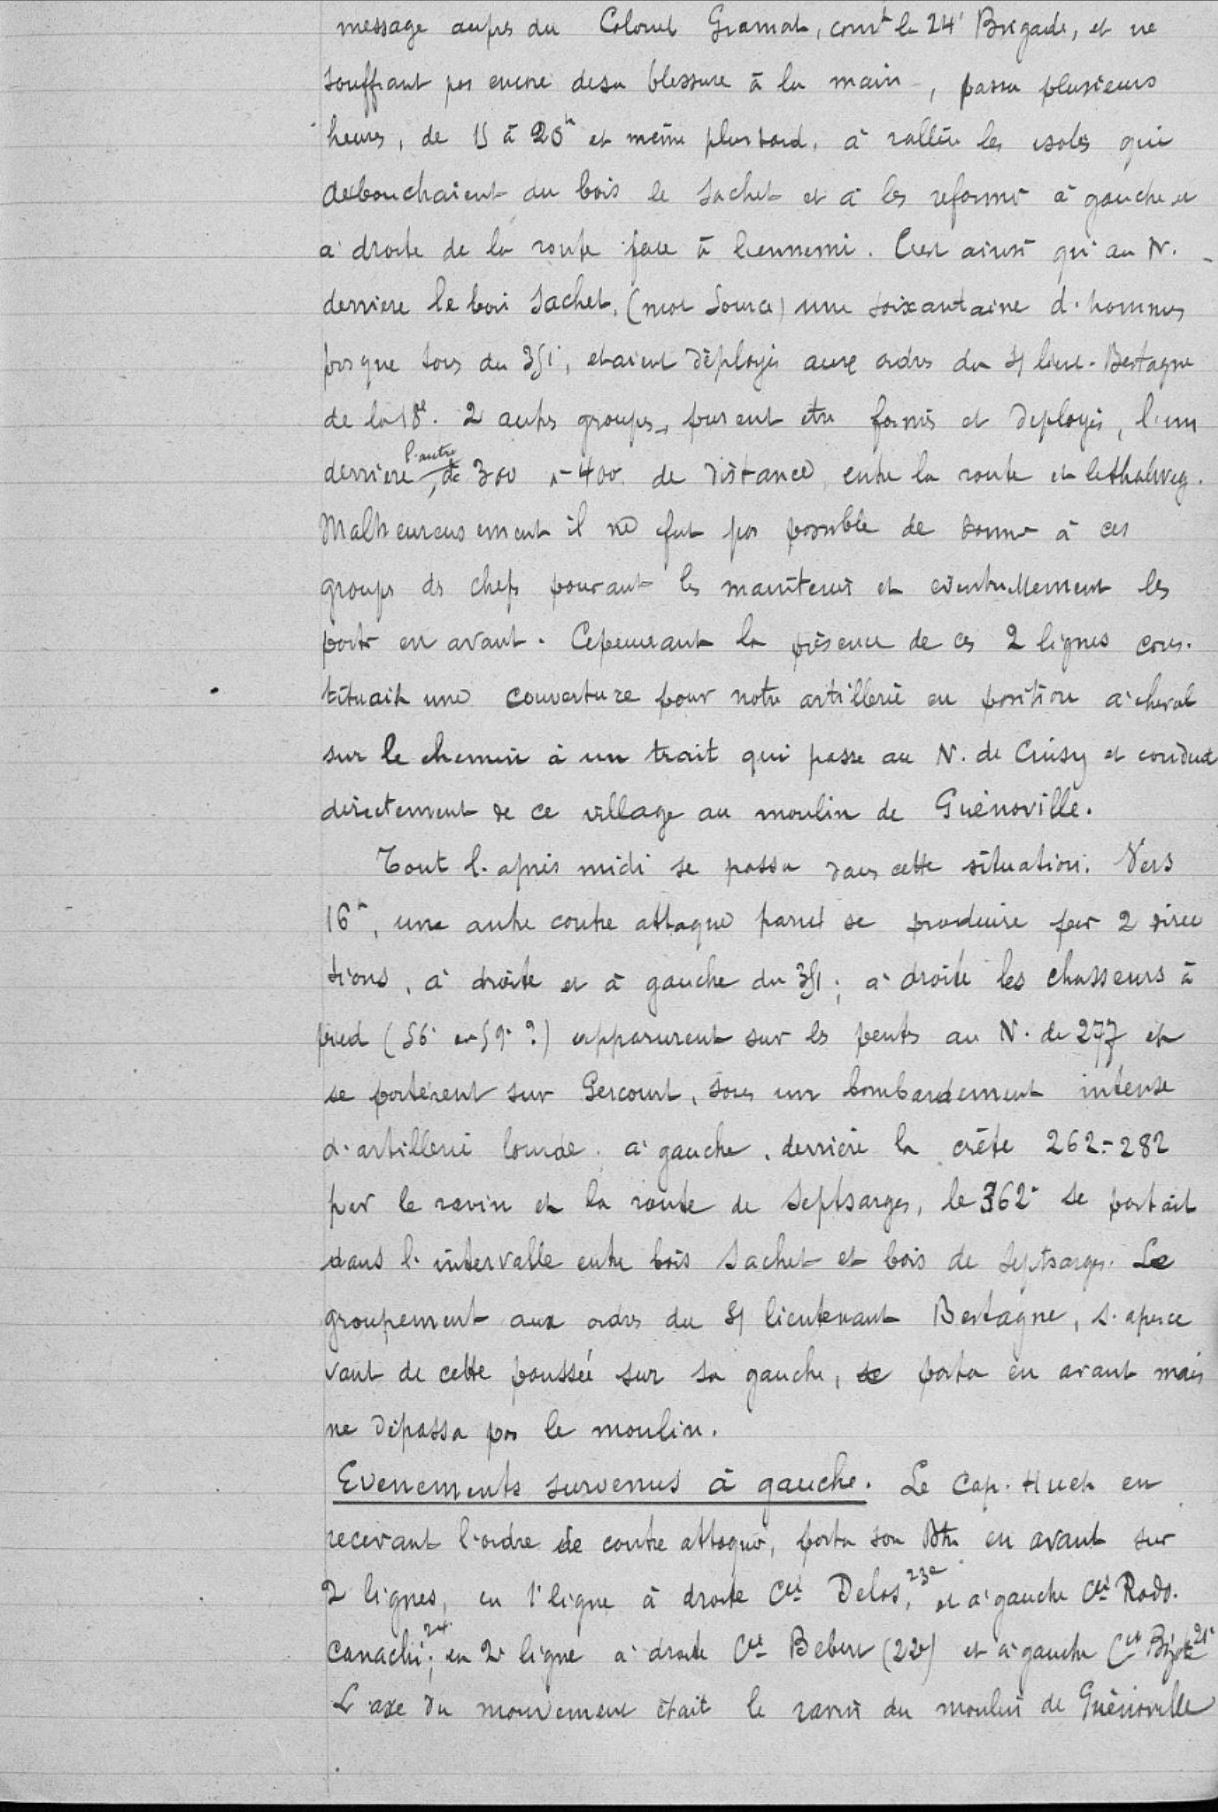 message auprès du Colonel Gramat, comt la 24e Brigade, et ne
souffrant pas encore de sa blessure à la main, passa plusieurs
heures, de 15 à 20h et même plus tard, à rallier les isolés qui
debouchaient du bois le Sachet et à les reformer à gauche et
à droite de la route face à l'ennemi. C'est ainsi qu'au N.
derrière le bois Sachet, (mot Source) une soixantaine d'hommes
presque tous du 351e, étaient déployés aux ordres du S/ lieut. Bertagne
de la 18e. 2 autres groupes, purent être formés et deployés, l'un
derrière l'autre, de 300 à 400 de distance, entre la route et le thalweg.
Malheureusement il ne fut pas possible de donner à ces
groupes des chefs pouvant les maintenir et eventuellement les
porter en avant. Cependant la présence de ces 2 lignes cons-
tituait une couverture pour notre artillerie en position à cheval
sur le chemin à un trait qui passe au N. de Cuisy et conduit
directement de ce village au moulin de Guénoville.
Tout l'après midi se passa dans cette situation. Vers
16h, une autre contre attaque parut se produire par 2 direc
tions, à droite et à gauche du 351; à droite les chasseurs à
pied (56e ou 59e ?) apparurent sur les pentes au N. de 277 et
se portèrent sur Gercourt, sous un bombardement intense
d'artillerie lourde; à gauche, derrière la crête 262-282
par le ravin et la route de Septsarges, le 362e se portait
dans l'intervalle entre bois Sachet et bois de Septsarges. Le
groupement aux ordres du S/ lieutenant Bertagne, s'aperce
vant de cette poussée sur sa gauche, se porta en avant mais
ne dépassa pas le moulin.
Evenements survenus à gauche. Le Cap. Huet en
recevant l'ordre de contre attaquer, porta son Btn en avant sur
2 lignes, en 1e ligne à droite Cie Delos, 23e et à gauche Cie Rodo-
canachi; 24 en 2e ligne à droite Cie (22e) et à gauche Cie 21e
L'axe du mouvement était le ravin du moulin de Guénoville